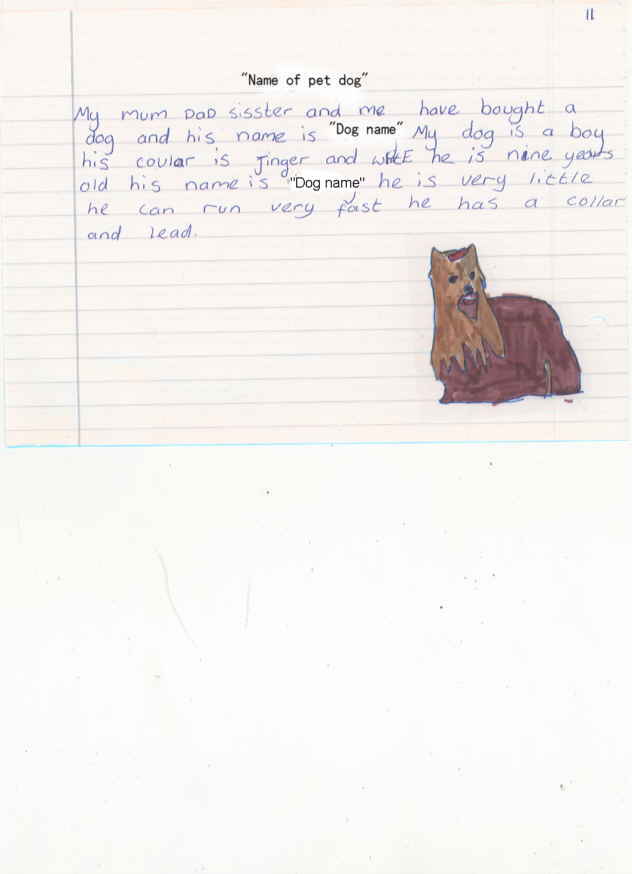 11
"Name of pet dog"
My mum DaD sisster and me have bought a
dog and his name is "Dog name" My dog is a boy
his coular is Jinger and whitE he is nine years
old his name is "Dog name" he is very little
he can run very fast he has a collar
and lead.